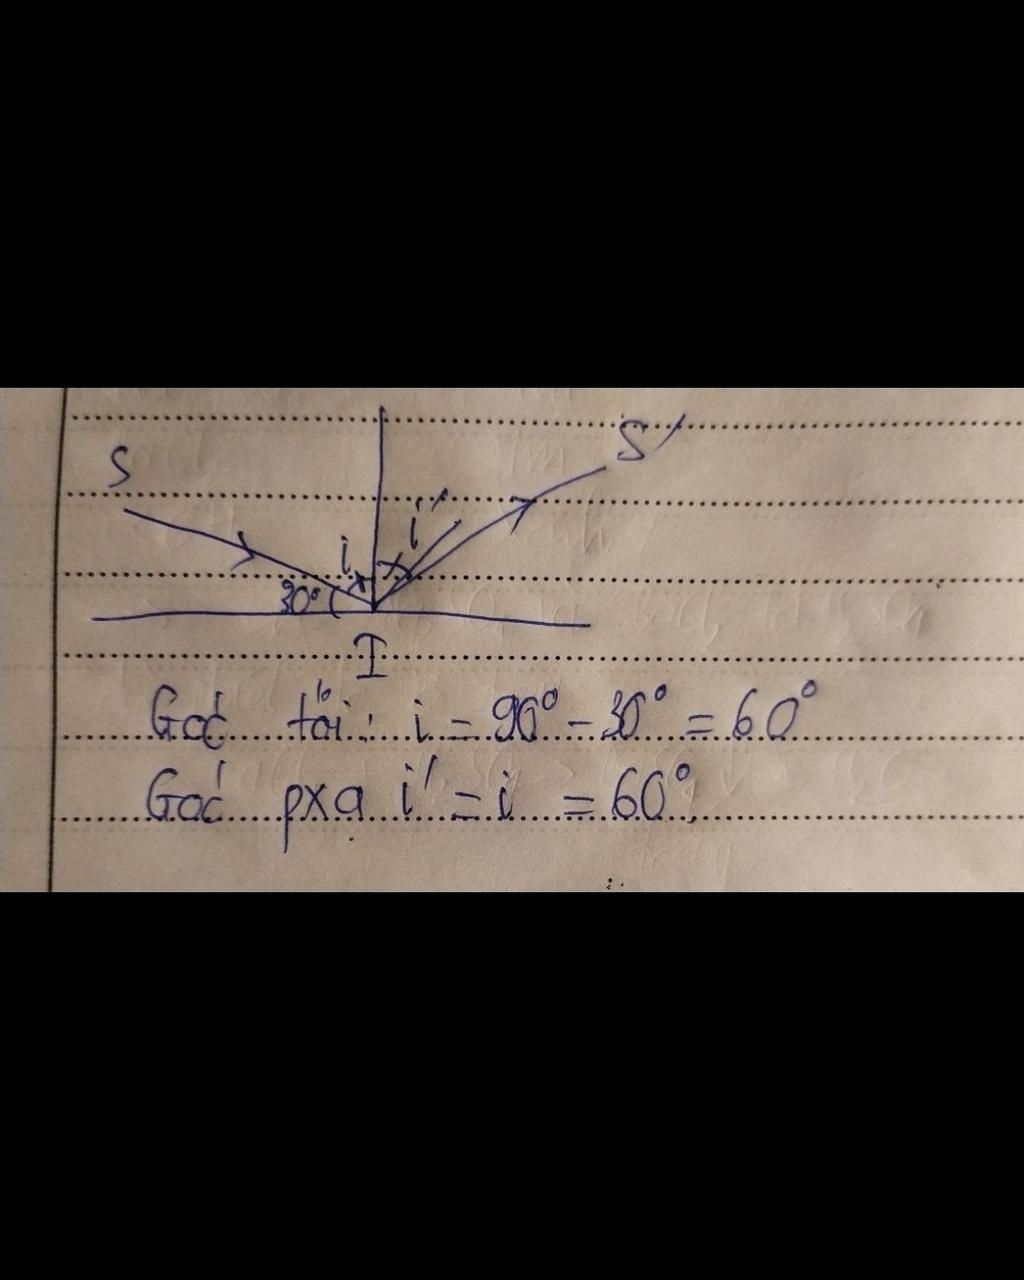 S
S'
i
i'
30°
I
Góc tới: i = 90° - 30° = 60°
Góc pxạ i' = i = 60°.